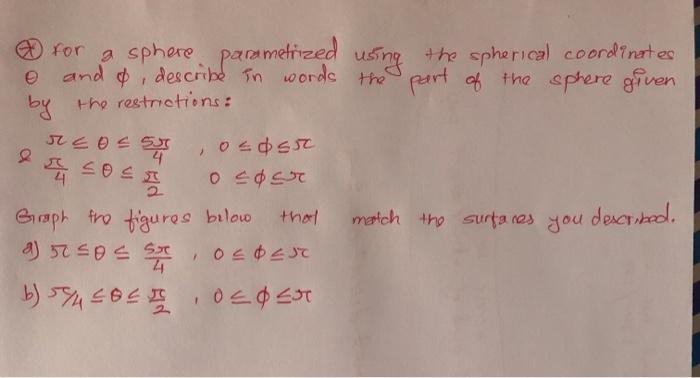 ⊛ for a sphere parametrized using the spherical coordinates
θ and ϕ, describe in words the part of the sphere given
by the restrictions:
π ≤ θ ≤ 5π/4 , 0 ≤ ϕ ≤ π
& π/4 ≤ θ ≤ π/2 0 ≤ ϕ ≤ π
Graph the figures below that match the surfaces you described.
a) π ≤ θ ≤ 5π/4 , 0 ≤ ϕ ≤ π
b) π/4 ≤ θ ≤ π/2 , 0 ≤ ϕ ≤ π